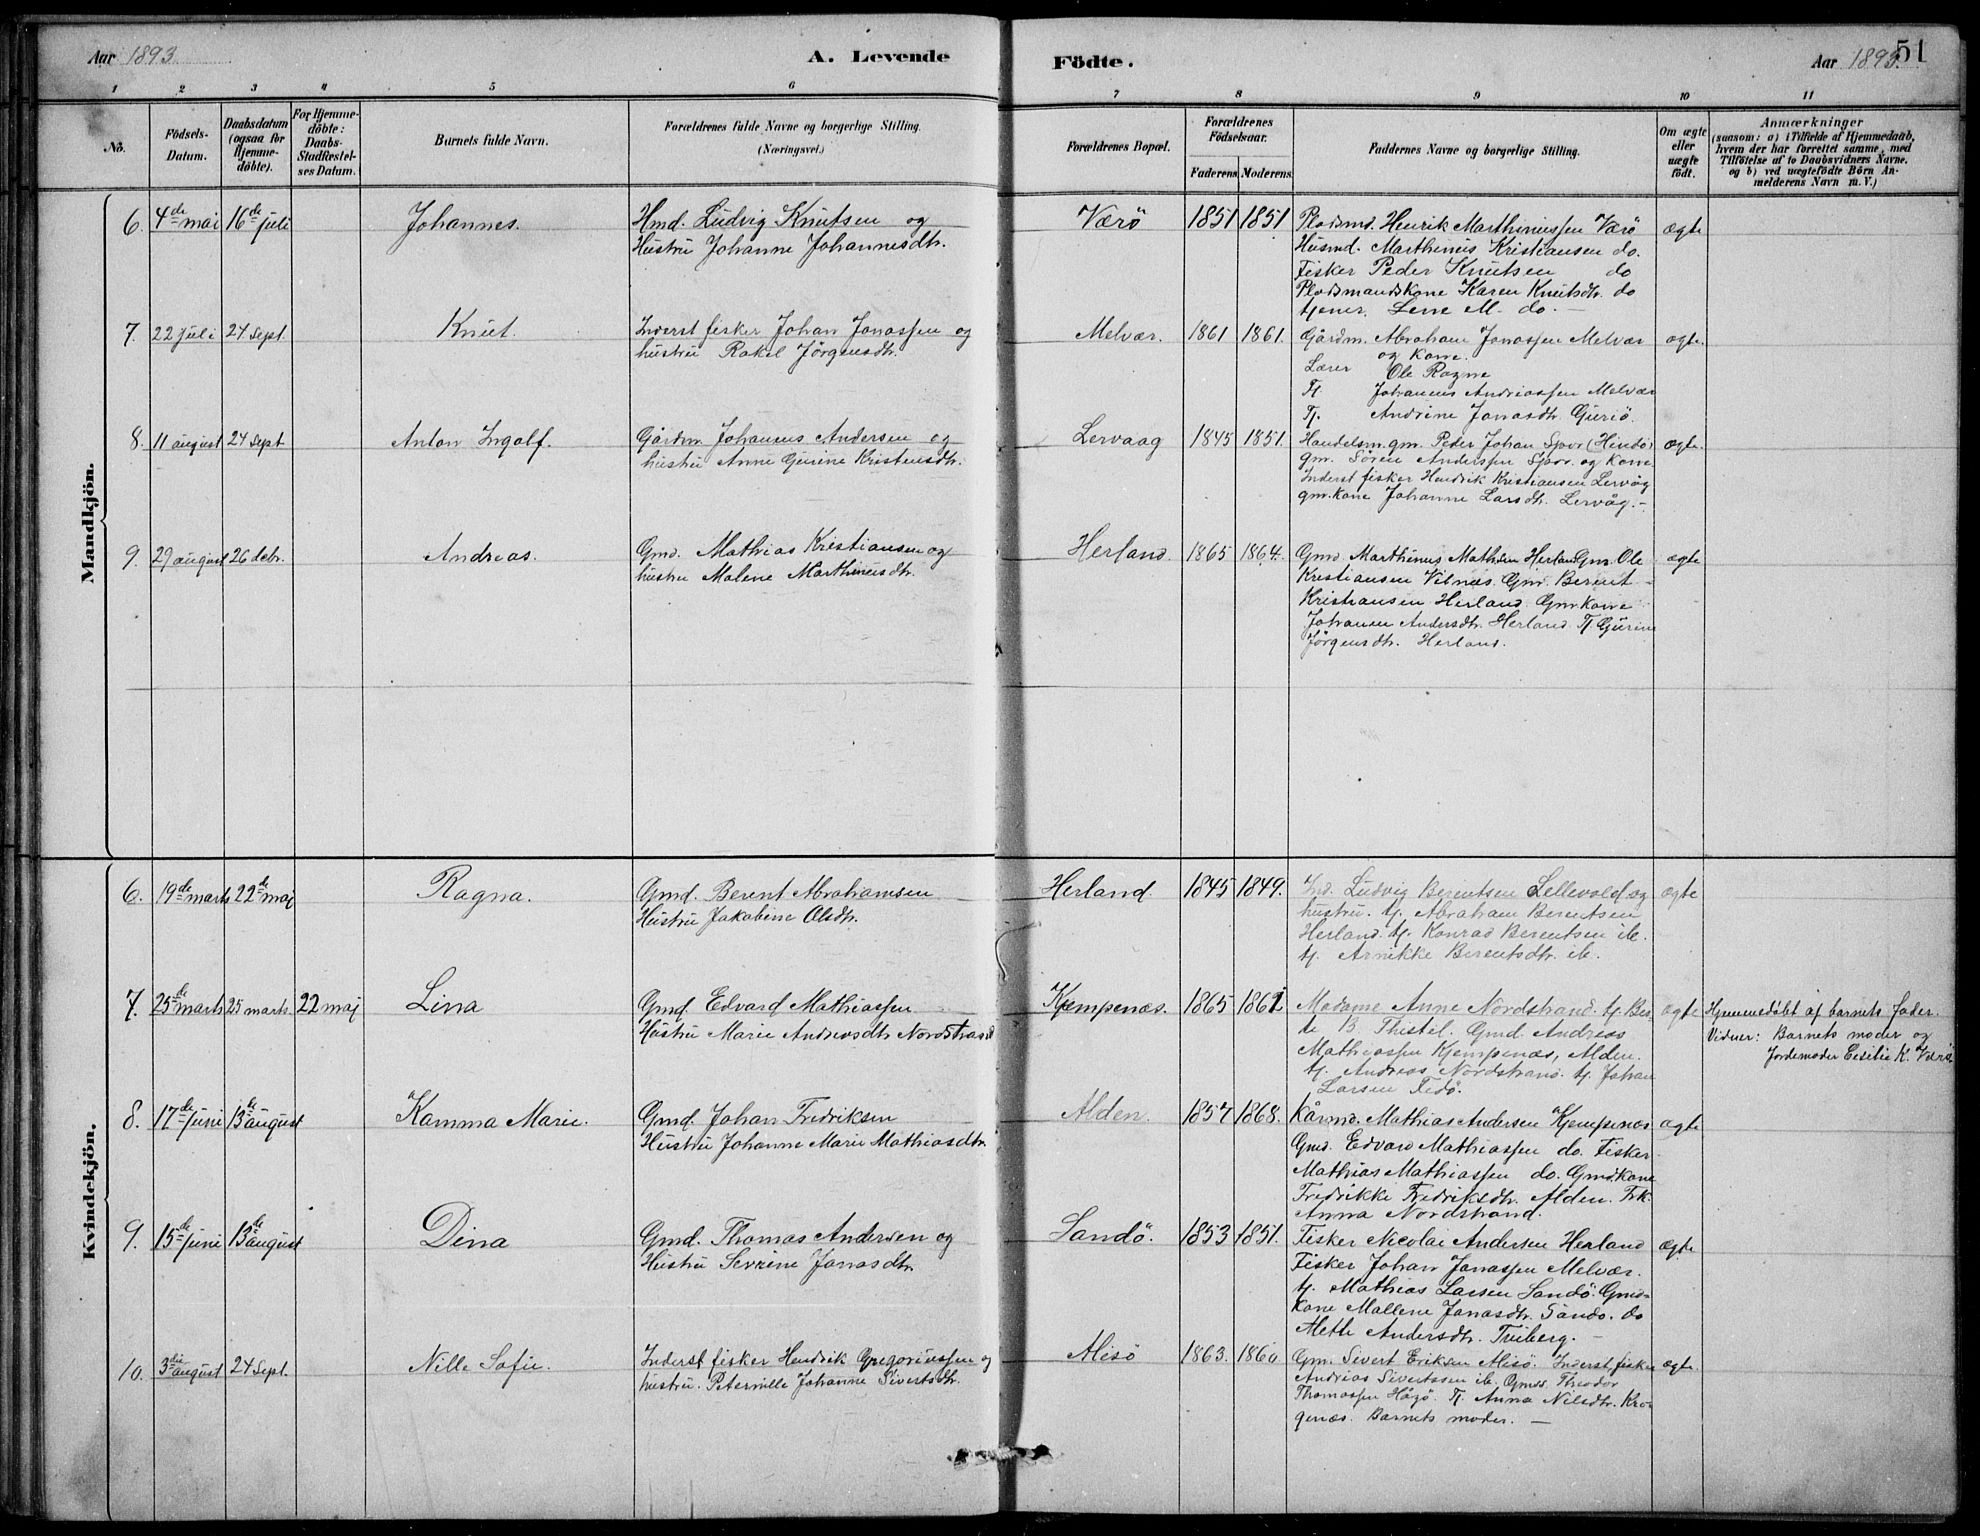 Aar 1893.
A. Levende
Födte.
Aar 1893.
51
1 2 3 4 5 6 7 8 9 10 11
No.
Födsels-
Datum.
Daabsdatum
(ogsaa for
Hjemme-
döbte).
For Hjemme-
döbte:
Daabs-
Stadfæstel-
ses Datum.
Barnets fulde Navn.
Forældrenes fulde Navne og borgerlige Stilling.
(Næringsvei.)
Forældrenes Bopæl.
Forældrenes
Födselsaar.
Faderens. Moderens.
Faddernes Navne og borgerlige Stilling.
Om ægte
eller
uægte
födt.
Anmærkninger
(saasom: a) i Tilfælde af Hjemmedaab,
hvem der har forrettet samme, med
Tilföielse af to Daabsvidners Navne,
og b) ved uægtefödte Börn An-
melderens Navn m. V.)
Mandkjön.
6. 4de mai 16de juli Johannes. Hmd. Ludvig Knutsen og
Hustru Johanne Johannesdtr.
Værö 1851 1851 Pladsmd. Henrik Marthinussen Værö ægte
Husmd. Marthinus Kristiansen do.
Fisker Peder Knutsen do
Pladsmandskone Karen Knutsdtr. do
tjener. Lene M. do. —
7. 22 juli 24 sept. Knut. Inderst fisker Johan Jonassen og
hustru Rakel Jörgensdtr.
Melvær. 1861 1861. Gårdm. Abraham Jonassen Melvær ægte.
og kone.
Lærer Ole Ragne
Tj. Johannes Andreassen Melvær
Tj. Andrine Jonasdtr. Guriö.
8. 11 august 24 sept Anton Ingolf. Gårdm. Johannes Andersen og
hustru Anne Gurine Kristensdtr.
Lervaag 1845 1851. Handelsm. gm. Peder Johan Spor (Hindö) ægte.
gm. Sören Anderssen Spor. og kone.
Inderst fisker Hendrik Kristiansen Lervåg
gm. kone Johanne Larsdtr. Lervåg. —
9. 29 august 26 debr. Andreas. Gmd. Mathias Kristiansen og
hustru Malene Marthinusdtr.
Herland. 1865 1864. Gmd Marthinus Mathsen Herland Gm. Ole ægte
Kristiansen Vilnæs. Gm. Berent
Kristiansen Herland. Gm. kone
Johanne Andersdtr. Herland Tj. Gurine
Jörgensdtr. Herland.
Kvindekjön.
6. 19de marts 22de maj Ragna. Gmd. Berent Abrahamsen
Hustru Jakobine Olsdtr.
Herland. 1845 1849. Ind. Ludvig Berentsen Lellevold og ægte
hustru. tj. Abraham Berentsen
Herland. tj. Konrad Berentsen ib.
tj. Arnikke Berentsdtr. ib.
7. 25de marts 25 marts. 22 maj Lina Gmd. Edvard Mathiassen
Hustru Marie Andreasdtr Nordstrand
Kjempenæs. 1865 1862 Madame Anne Nordstrand. tj. Ber- ægte Hjemmedöbt af barnets fader.
te B. Thistel. Gmd Andreas Vidner: Barnets moder og
Mathiassen Kjempenæs, Alden. Jordemoder Cecilie K. Værö
tj. Andreas Nordstrand. tj. Johan
Larsen Tedö.
8. 17de juni 13de august Kamma Marie. Gmd. Johan Fredriksen
Hustru Johanne Marie Mathiasdtr.
Alden. 1857 1868. Kårmd. Mathias Andersen Kjempenæs ægte
Gmd. Edvard Mathiassen do. Fisker
Mathias Mathiassen do. Gmdkone
Fredrikke Fredriksdtr. Alden. Frk.
Anna Nordstrand.
9. 15de juni 13de august Dina Gmd. Thomas Andersen og
Hustru Sevrine Jonasdtr.
Sandö. 1853 1851. Fisker Nicolai Andersen Herland ægte
Fisker Johan Jonassen Melvær.
tj. Mathias Larsen Sandö. Gmd-
kone Mallene Jonasdtr. Sandö. do
Methe Andersdtr. Tviberg. —
10. 3die august 24 Sept. Nille Sofie. Inderst fisker Hendrik Gregoriussen og
hustru. Peternille Johanne Sivertsdtr.
Alisö 1863. 1860 Gm. Sivert Eriksen Alisö. Inderst fisker ægte.
Andreas Sivertssen ib. Gmd. Theodor
Thomassen Hågö. Tj. Anna Nilsdtr. Kro-
genæs. Barnets moder. —